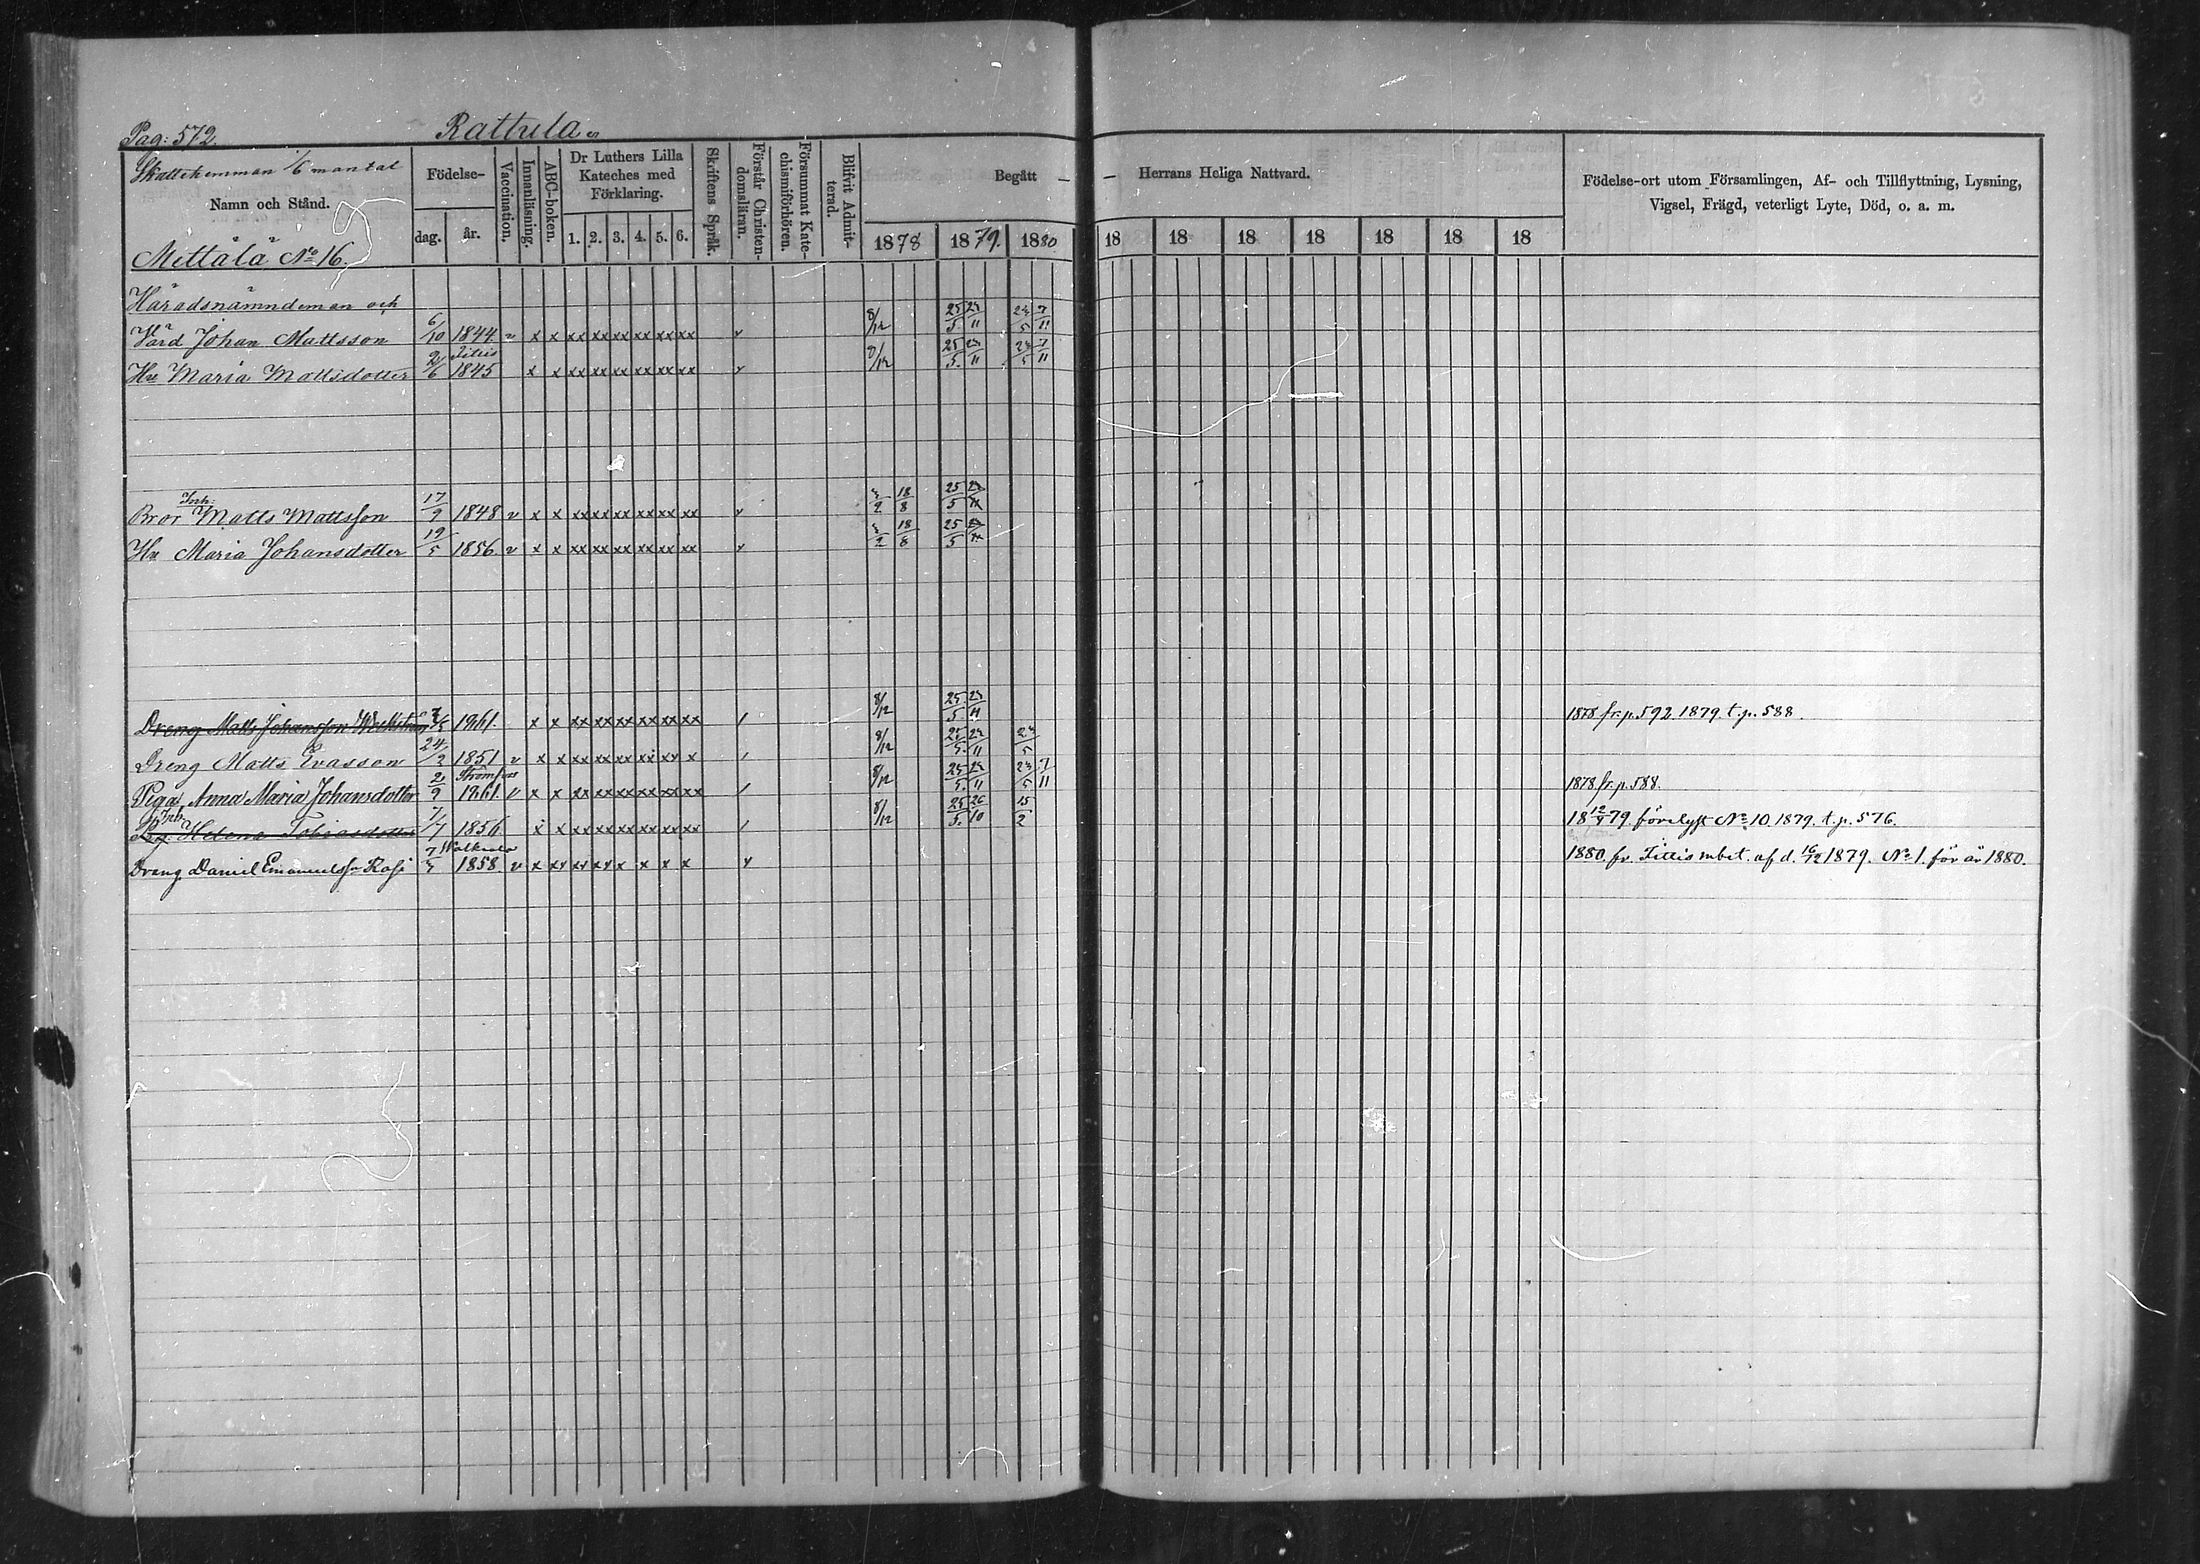 Pag: 572. Rattula
Skattehemman 1/6 mantal
Namn och Stånd.
Födelse-
dag. år.
Vaccination.
Innanläsning.
ABC-boken.
Dr Luthers Lilla
Kateches med
Förklaring.
1. 2. 3. 4. 5. 6.
Skriftens Språk.
Förstår Christen-
domsläran.
Försummat Kate-
chismiförhören.
Blifvit Admit-
terad.
Begått — — Herrans Heliga Nattvard.
1878 1879. 1880 18 18 18 18 18 18 18
Födelse-ort utom Församlingen, Af- och Tillflyttning, Lysning,
Vigsel, Frägd, veterligt Lyte, Död, o. a. m.
Mettälä No 16.
Häradsnämndeman och
Värd Johan Mattsson 6/10 1844 v x x xx xx xx xx xx xx v 8/12 25/5 23/11 23/5 7/11
Hu Maria Mattsdotter 2/6 Sittis 1845 x x xx xx xx xx xx xx v 8/12 25/5. 23/11 23/5 7/11
Bror Matts Mattsson 17/9 1848 v x x xx xx xx xx xx xx v 18/8 25/5
Hu Maria Johansdotter 19/5 1856 v x x xx xx xx xx xx xx v 18/8 25/5
Dreng Matts Johansson 1861. x x xx xx xx xx xx xx / 8/12 25/5 23/11 1878 fr. p. 592 1879 t. p. 588.
Dreng Matts Evasson 24/2 1851 v x x xx xx xx xx xx x / 8/12 25/5. 23/11 23/5
Piga Anna Maria Johansdotter 2/9 1861. v x x xx xx xx xx xx xx / 8/12 25/5. 23/11 23/5 7/11 1878 fr. p. 588.
Helena Tobiasdotter 7/7 1856. x x xx xx xx xx xx xx / 8/12 25/5. 26/10 15/2 18 12/9 79. förelyst No 10. 1879. t. p. 576.
Dreng Daniel Emanuelss. 1858. v x xx xx xx x x x x v 1880. fr. Sittis mbet. af d. 16/12 1879. No 1. för år 1880.